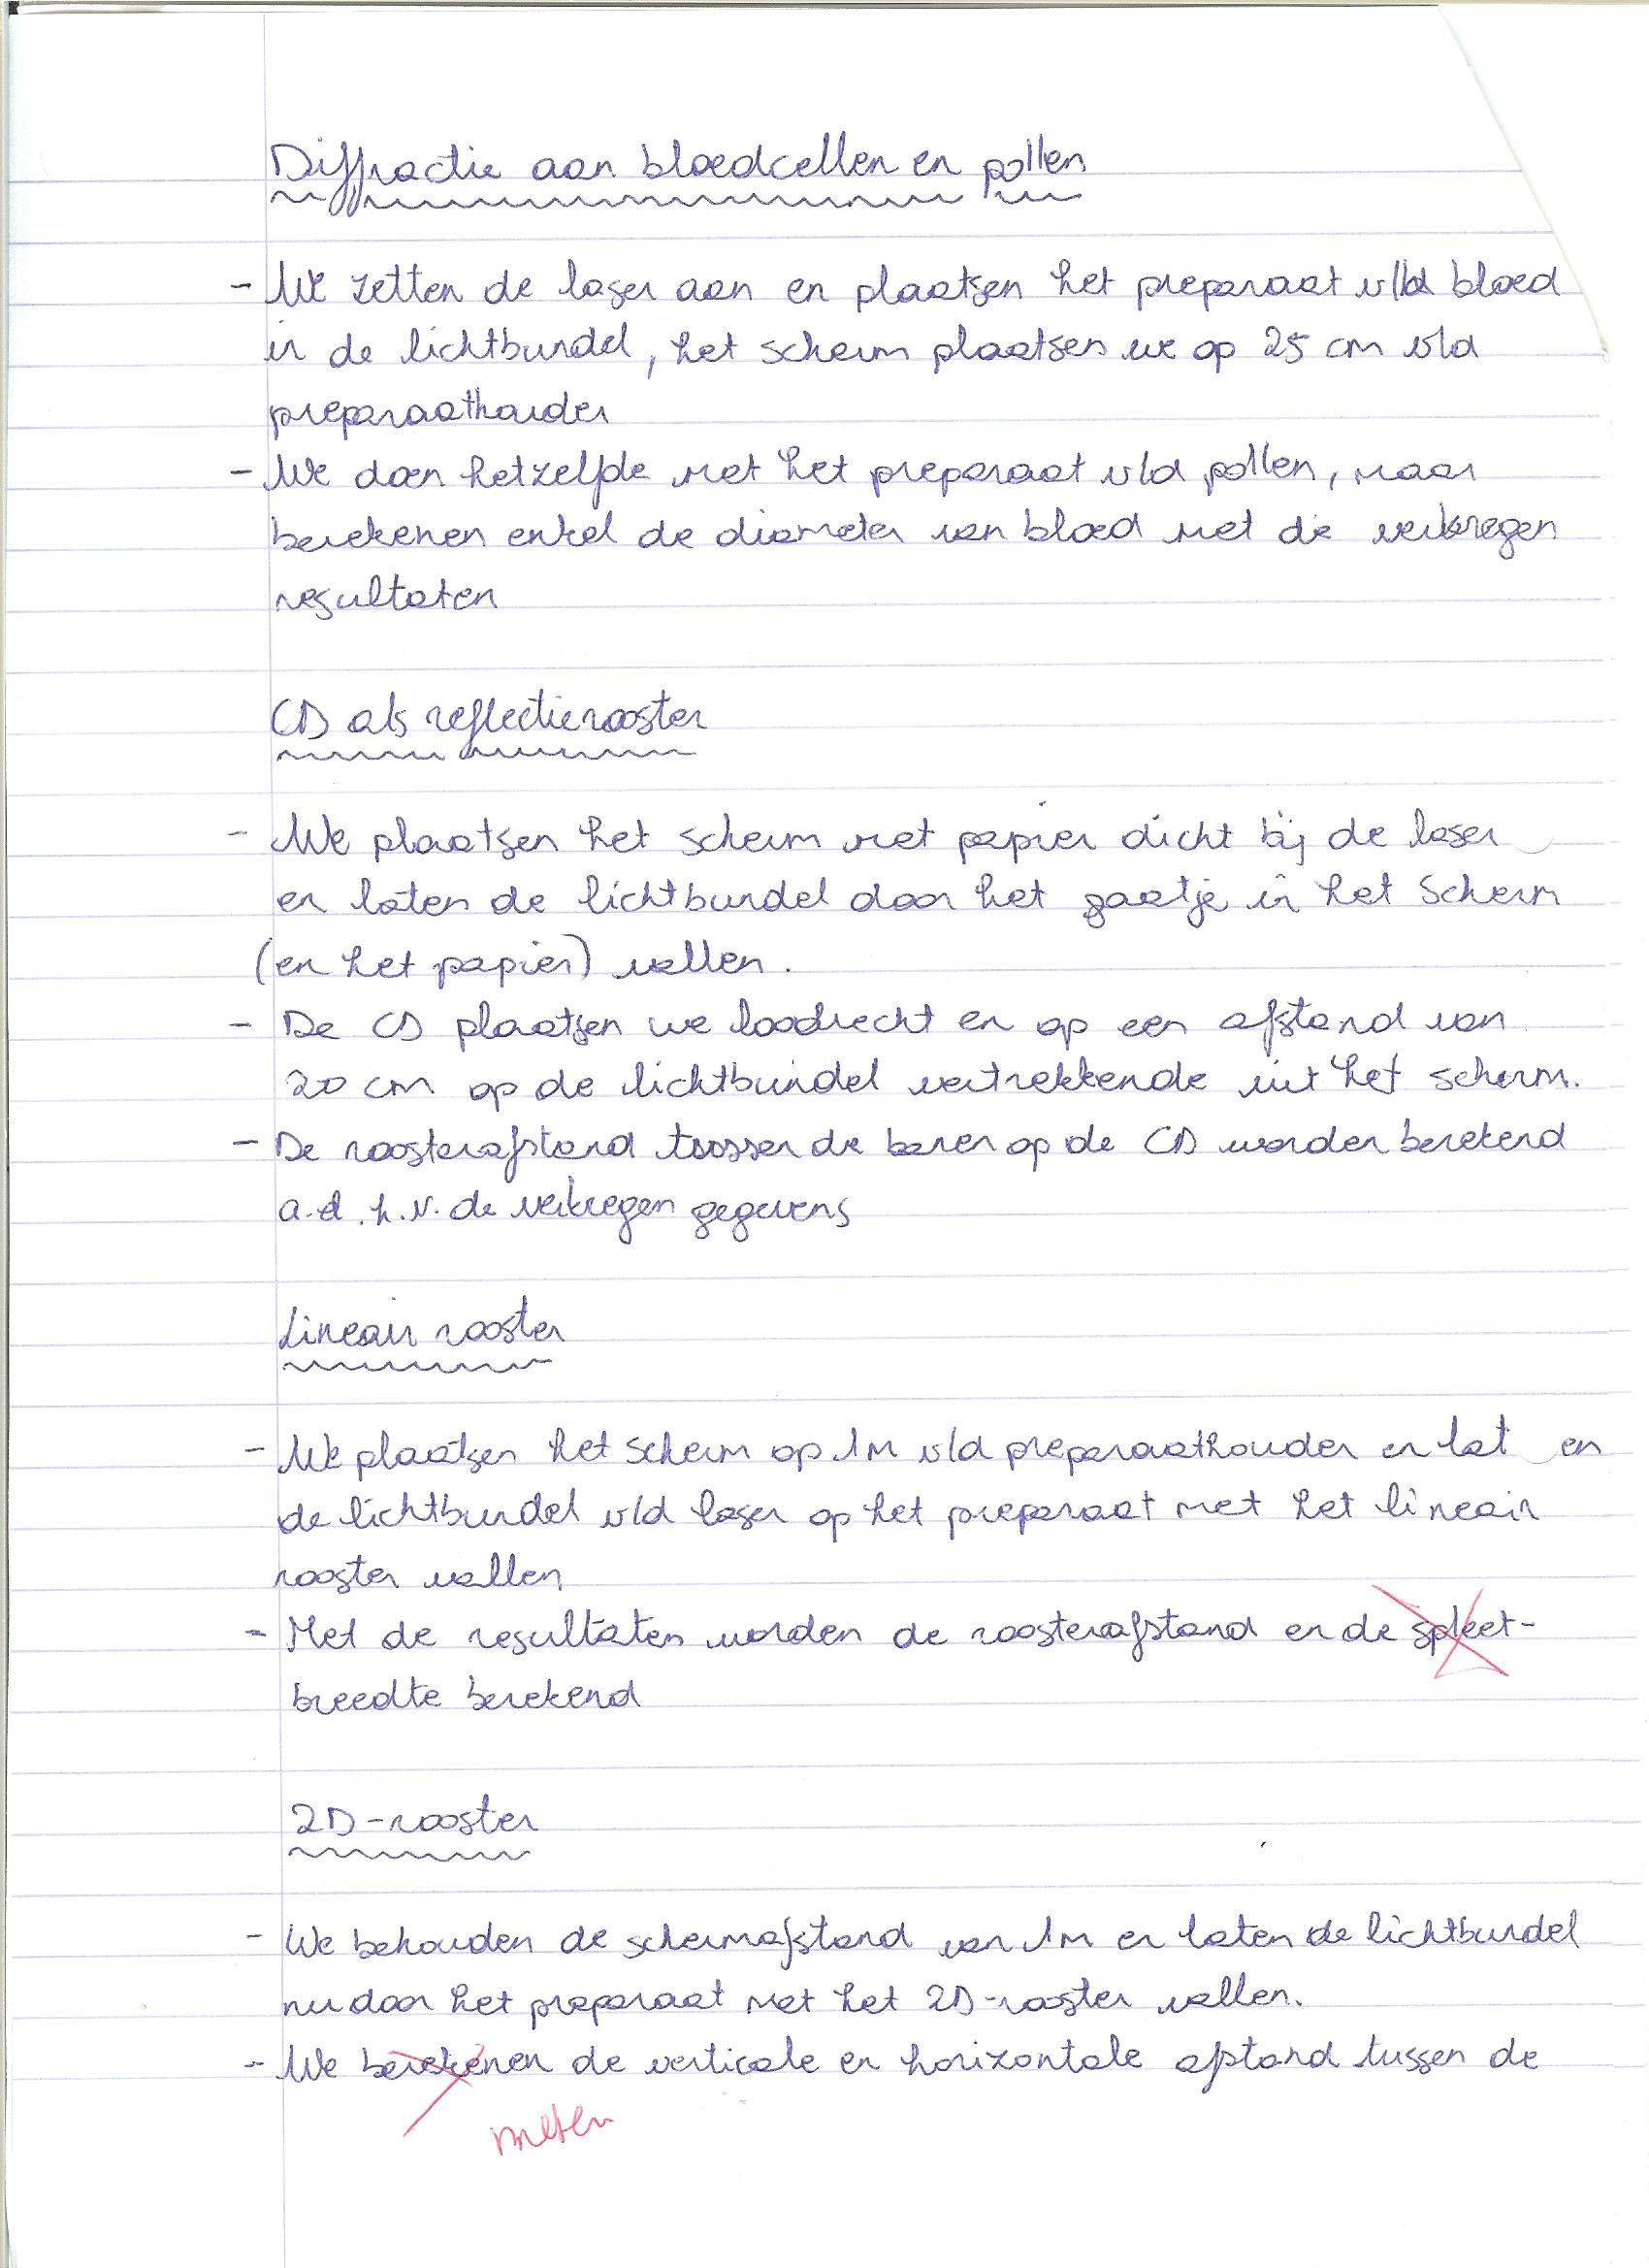 Diffractie aan bloedcellen en pollen
- We zetten de laser aan en plaatsen het preparaat v/d bloed
in de lichtbundel, het scherm plaatsen we op 25 cm v/d
preparaathouder
- We doen hetzelfde met het preparaat v/d pollen, maar
berekenen enkel de diameter van bloed met de verkregen
resultaten
CD als reflectierooster
- We plaatsen het scherm met papier dicht bij de laser
en laten de lichtbundel door het gaatje in het scherm
(en het papier) vallen.
- De CD plaatsen we loodrecht en op een afstand van
20 cm op de lichtbundel vertrekkende uit het scherm.
- De roosterafstand tussen de banen op de CD worden berekend
a.d.h.v. de verkregen gegevens
Lineair rooster
- We plaatsen het scherm op 1m v/d preparaathouder en lat en
de lichtbundel v/d laser op het preparaat met het lineair
rooster vallen
- Met de resultaten worden de roosterafstand en de spleet-
breedte berekend
2D-rooster
- We behouden de schermafstand van 1m en laten de lichtbundel
nu door het preparaat met het 2D-rooster vallen.
- We berekenen de verticale en horizontale afstand tussen de
meten